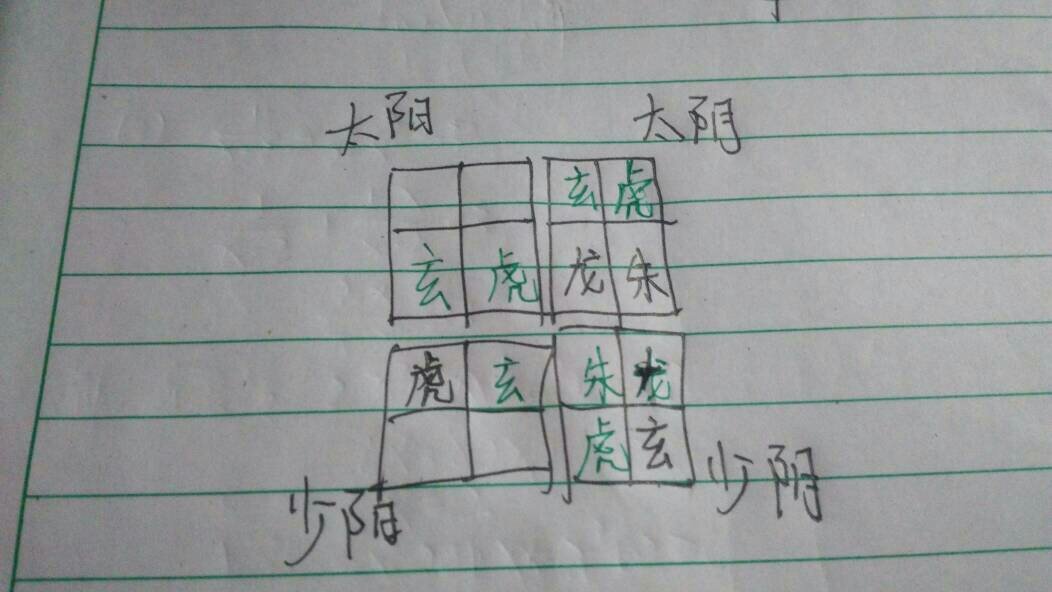 太阳 太阴
玄 虎
玄 虎 龙 朱
虎 玄 朱 龙
虎 玄
少阳 少阴